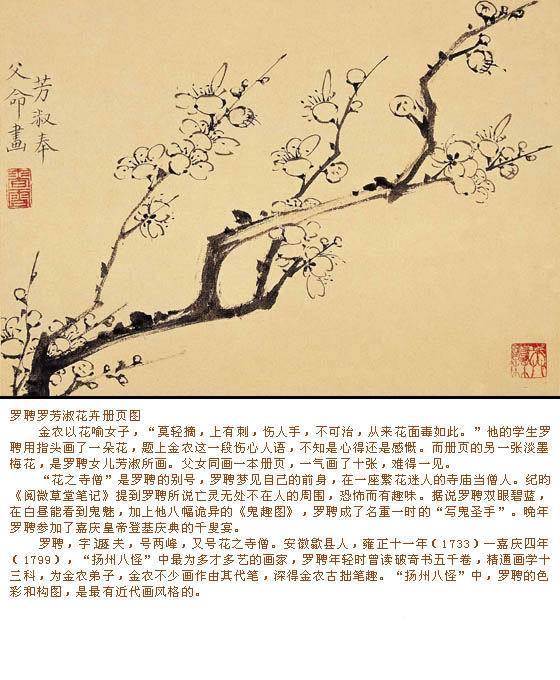 芳淑奉
父命畫
罗聘罗芳淑花卉册页图
金农以花喻女子，“莫轻摘，上有刺，伤人手，不可治，从来花面毒如此。”他的学生罗
聘用指头画了一朵花，题上金农这一段伤心人语，不知是心得还是感慨。而册页的另一张淡墨
梅花，是罗聘女儿芳淑所画。父女同画一本册页，一气画了十张，难得一见。
“花之寺僧”是罗聘的别号，罗聘梦见自己的前身，在一座繁花迷人的寺庙当僧人。纪昀
《阅微草堂笔记》提到罗聘所说亡灵无处不在人的周围，恐怖而有趣味。据说罗聘双眼碧蓝，
在白昼能看到鬼魅，加上他八幅诡异的《鬼趣图》，罗聘成了名重一时的“写鬼圣手”。晚年
罗聘参加了嘉庆皇帝登基庆典的千叟宴。
罗聘，字遯夫，号两峰，又号花之寺僧。安徽歙县人，雍正十一年（1733）—嘉庆四年
（1799），“扬州八怪”中最为多才多艺的画家，罗聘年轻时曾读破奇书五千卷，精通画学十
三科，为金农弟子，金农不少画作由其代笔，深得金农古拙笔趣。“扬州八怪”中，罗聘的色
彩和构图，是最有近代画风格的。